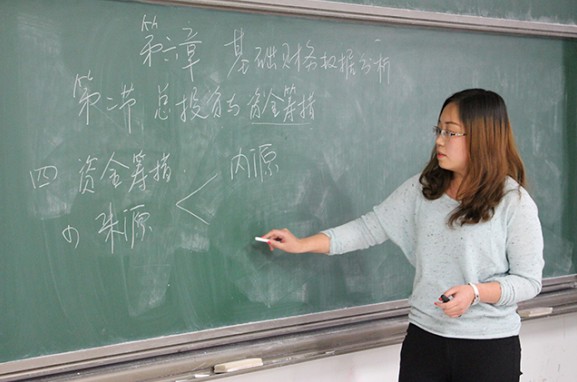 第六章 基础财务数据分析
第二节 总投资与资金筹措
四 资金筹措
(1) 来源 < 内源